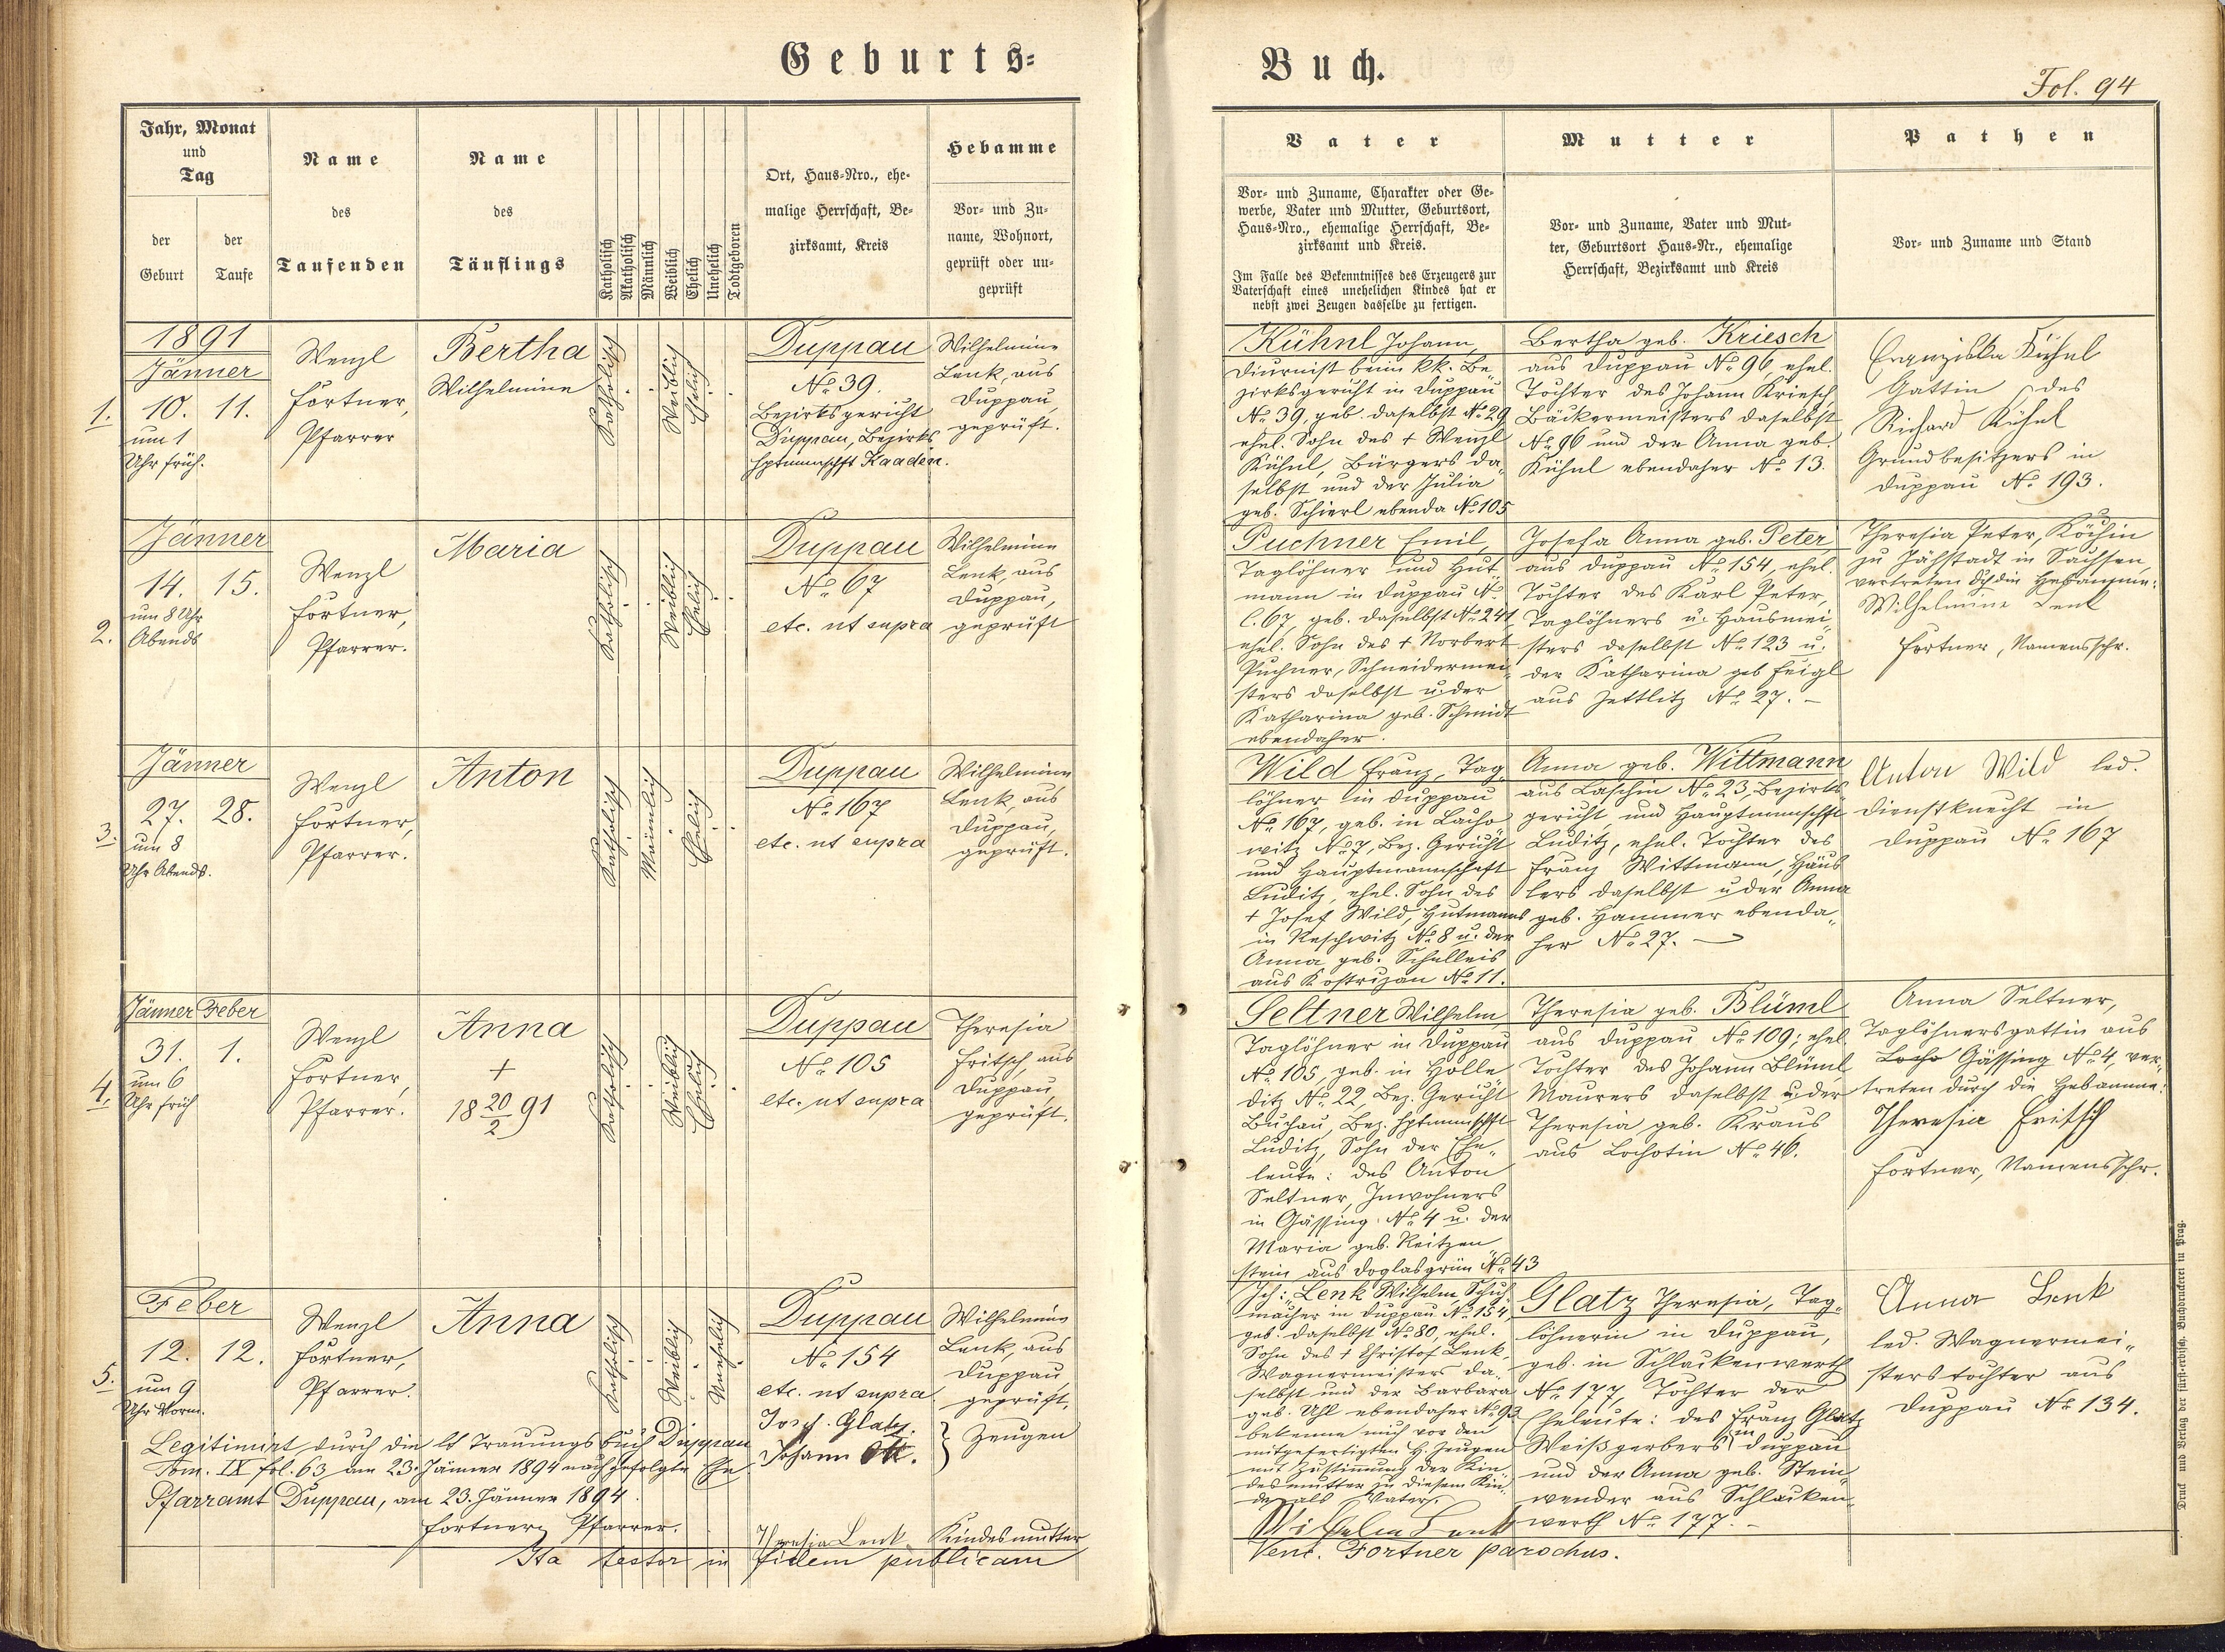 Geburts=
Buch.
Fol. 94
Jahr, Monat
und
Tag
der
Geburt
der
Taufe
Name
des
Taufenden
Name
des
Täuflings
Katholisch
Akatholisch
Männlich
Weiblich
Ehelich
Unehelich
Todtgeboren
Ort, Haus=Nro., ehe=
malige Herrschaft, Be=
zirksamt, Kreis
Hebamme
Vor= und Zu=
name, Wohnort,
geprüft oder un=
geprüft
Vater
Vor= und Zuname, Charakter oder Ge=
werbe, Vater und Mutter, Geburtsort,
Haus=Nro., ehemalige Herrschaft, Be=
zirksamt und Kreis.
Im Falle des Bekenntnisses des Erzeugers zur
Vaterschaft eines unehelichen Kindes hat er
nebst zwei Zeugen dasselbe zu fertigen.
Mutter
Vor= und Zuname, Vater und Mut=
ter, Geburtsort Haus=Nr., ehemalige
Herrschaft, Bezirksamt und Kreis
Pathen
Vor= und Zuname und Stand
1891
Jänner
1. 10. 11.
um 1
Uhr früh.
Wenzl
Fortner,
Pfarrer
Bertha
Wilhelmine
Katholisch
Weiblich
Ehelich
Duppau
No 39.
Bezirksgericht
Duppau, Bezirks
hptmannschft Kaaden.
Wilhelmine
Lenk, aus
Duppau,
geprüft.
Kühnl Johann,
Diurnist beim kk. Be
zirksgericht in Duppau
No 39, geb. daselbst No 29
ehel. Sohn des + Wenzl
Kühnl, Bürgers da„
selbst und der Julia
geb. Schierl ebenda No 105
Bertha geb. Kriesch
aus Duppau No 96, ehel.
Tochter des Johann Kriesch,
Bäckermeisters daselbst
No 96 und der Anna geb.
Kühnl ebendaher No 13.
Franziska Kühnl
Gattin des
Richard Kühnl
Grundbesitzers in
Duppau No 193.
Jänner
2. 14. 15.
um 8 Uhr
Abends
Wenzl
Fortner,
Pfarrer.
Maria
Katholisch
Weiblich
Ehelich
Duppau
No 67
etc. ut supra
Wilhelmine
Lenk, aus
Duppau,
geprüft
Puchner Emil,
Taglöhner und Hut
mann in Duppau N.
C. 67, geb. daselbst No 241
ehel. Sohn des + Norbert
Puchner, Schneidermei„
sters daselbst u. der
Katharina geb. Schmidt
ebendaher.
Josefa Anna geb. Peter,
aus Duppau No 154, ehel.
Tochter des Karl Peter,
Taglöhners u. Hausmei„
sters daselbst No 123 u.
der Katharina geb Feigl
aus Zettlitz No 27. –
Theresia Peter, Köchin
zu Jöhstadt in Sachsen,
vertreten dch die Hebamme:
Wilhelmine Lenk
Fortner, Namensschr.
Jänner
3. 27. 28.
um 8
Uhr Abends.
Wenzl
Fortner,
Pfarrer.
Anton
Katholisch
Männlich
Ehelich
Duppau
No 167
etc. ut supra
Wilhelmine
Lenk, aus
Duppau,
geprüft.
Wild Franz, Tag
löhner in Duppau
No 167, geb. in Lacho
witz No 7, Bez. Gericht
und Hauptmannschaft
Luditz, ehel. Sohn des
+ Josef Wild, Hutmanns
in Reschwitz No 8 u. der
Anna geb. Schelleis
aus Kostrizan No 11.
Anna geb. Wittmann
aus Laschin No 23, Bezirks
gericht und Hauptmannschft
Luditz, ehel. Tochter des
Franz Wittmann, Häus
lers daselbst u der Anna
geb. Hammer ebenda„
her No 27. –
Anton Wild led.
Dienstknecht in
Duppau No 167
Jänner Feber
4. 31. 1.
um 6
Uhr früh
Wenzl
Fortner,
Pfarrer.
Anna
+
18 20/2 91
Katholisch
Weiblich
Ehelich
Duppau
No 105
etc. ut supra
Theresia
Fritsch, aus
Duppau,
geprüft.
Seltner Wilhelm,
Taglöhner in Duppau
No 105, geb. in Holle
ditz No 22 Bez. Gericht
Buchau, Bez. Hptmannschft
Luditz, Sohn der Ehe„
leute: des Anton
Seltner, Inwohners
in Gässing No 4 u. der
Maria geb. Reitzen
stein aus Doglasgrün No 43
Theresia geb. Blüml
aus Duppau No 109; ehel
Tochter des Johann Blüml
Maurers daselbst u. der
Theresia geb. Kraus
aus Lochotin No 46.
Anna Seltner,
Taglöhnersgattin aus
Locho Gässing No 4, ver„
treten durch die Hebamme:
Theresia Fritsch
Fortner, Namensschr.
Feber
5. 12. 12.
um 9
Uhr Vorm.
Wenzl
Fortner,
Pfarrer.
Anna
Katholisch
Weiblich
Unehelich
Duppau
No 154
etc. ut supra
Wilhelmine
Lenk, aus
Duppau,
geprüft.
Josef Glatz.
Johann Ott.
} Zeugen
Legitimirt durch die lt Trauungsbuch Duppau
Tom. IX fol. 63 am 23. Jänner 1894 nachgefolgte Ehe
Pfarramt Duppau, am 23. Jänner 1894.
Fortner, Pfarrer.
Theresia Lenk Kindesmutter
Ita testor in fidem publicam
Ich: Lenk Wilhelm, Schuh
macher in Duppau No 154,
geb. daselbst No 80, ehel.
Sohn des + Christof Lenk,
Wagnermeisters da„
selbst und der Barbara
geb. Uhl ebendaher No 93
bekenne mich vor den
mitgefertigten H. Zeugen
mit Zustimmung der Kin
desmutter zu diesem Kin„
de als Vater.
Wilhelm Lenk
Glatz Theresia, Tag„
löhnerin in Duppau,
geb. in Schlackenwerth
No 177, Tochter der
Eheleute: des Franz Glatz
Weißgerbers in Duppau
und der Anna geb. Stein„
wender aus Schlacken„
werth No 177. –
Anna Lenk
led. Wagnermei„
sterstochter aus
Duppau No 134.
Venc. Fortner parochus.
Druck und Verlag der fürst=erzbisch. Buchdruckerei in Prag.